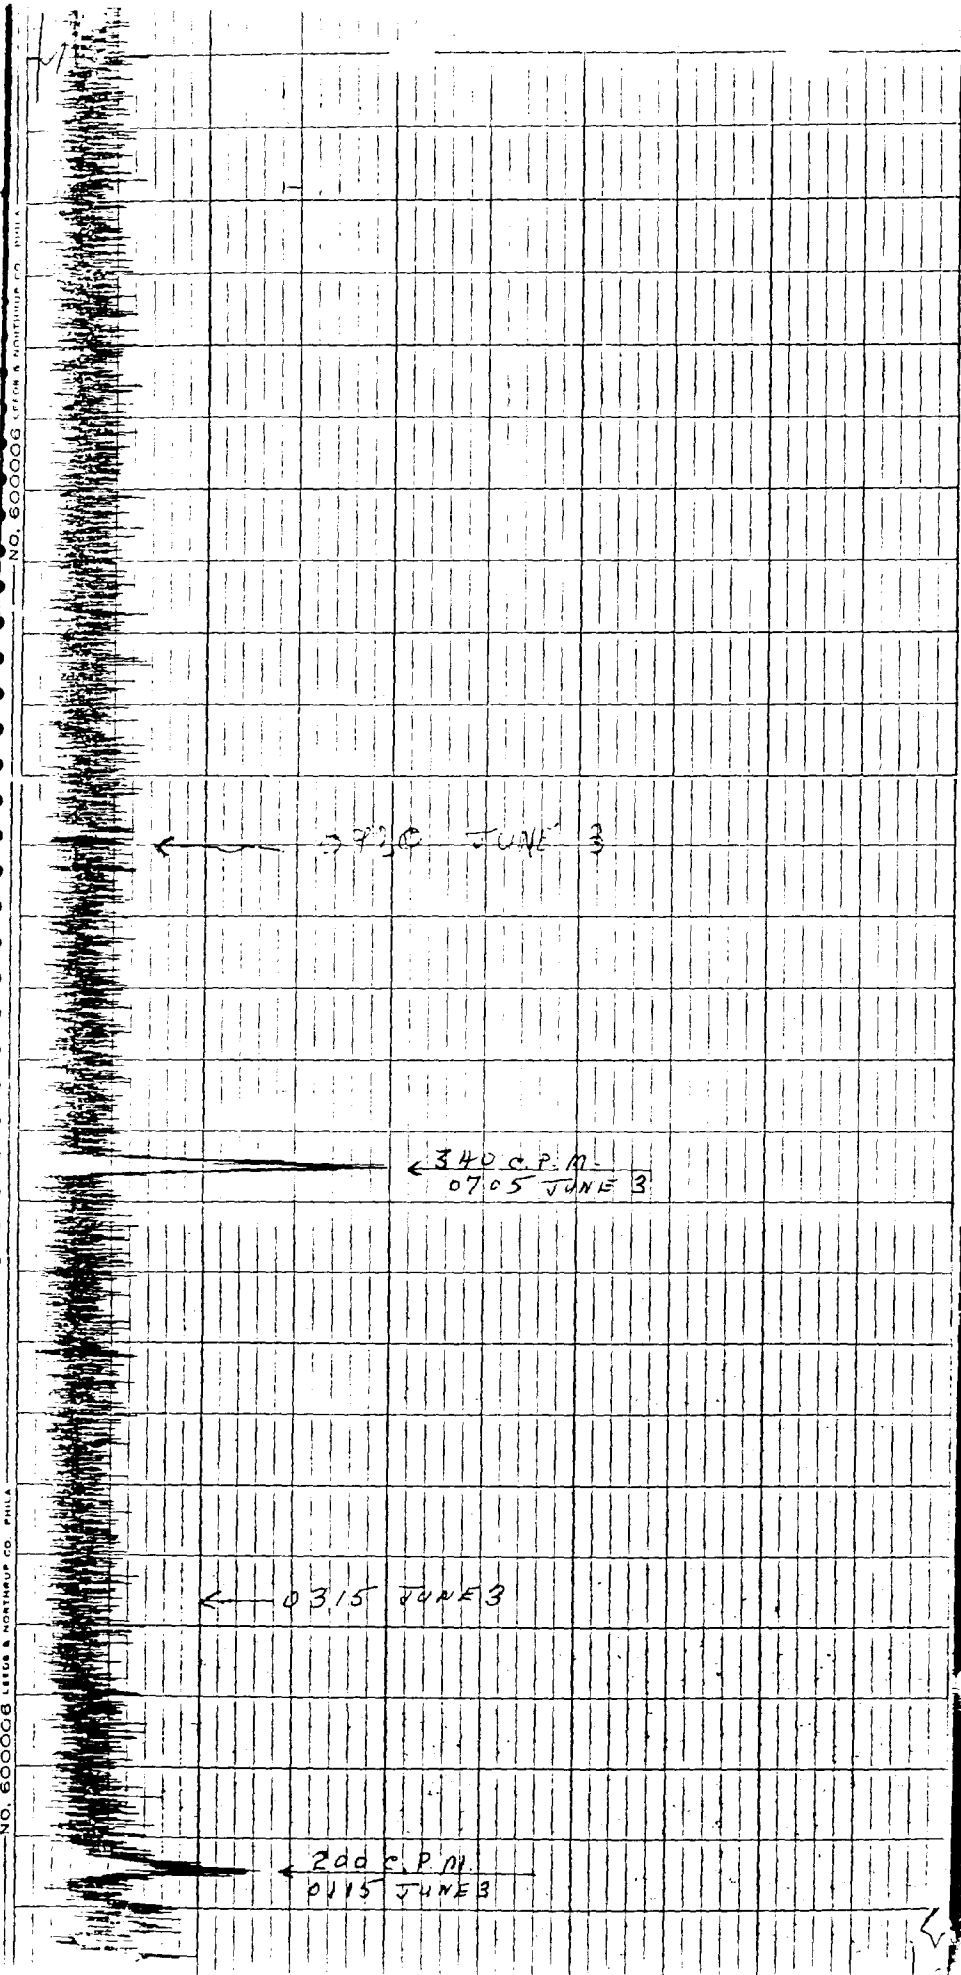 NO. 600006 LEEDS & NORTHRUP CO. PHILA
JUNE 3
340 C.P.M.
0705 JUNE 3
NO. 600006 LEEDS & NORTHRUP CO. PHILA
0315 JUNE 3
200 C.P.M.
0115 JUNE 3